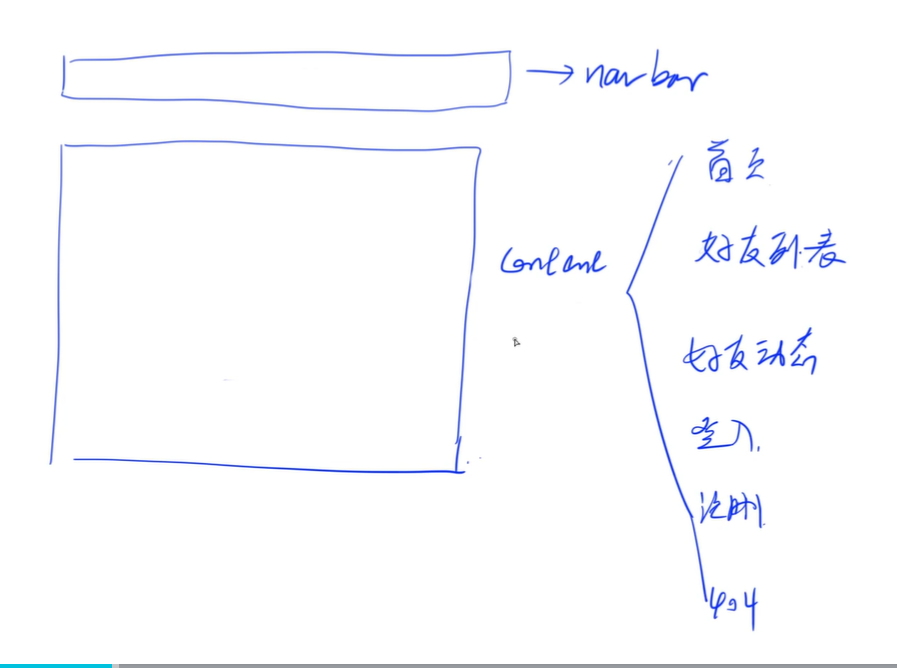 navbar
首页
content
好友列表
好友动态
登入
注册
404